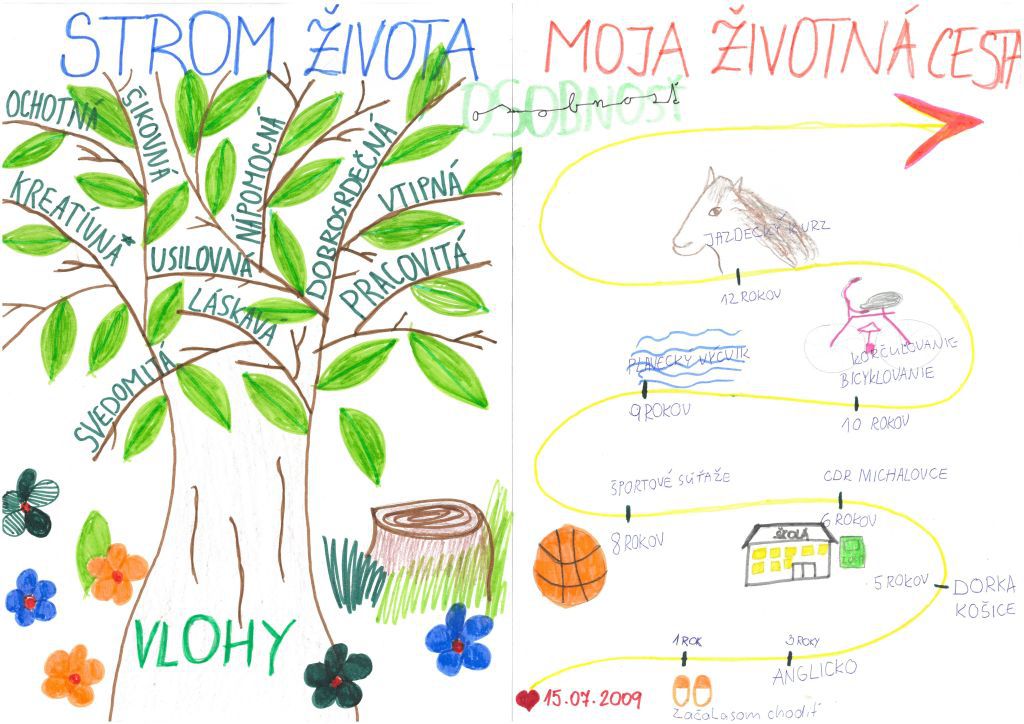 STROM ŽIVOTA
OCHOTNÁ
ŠIKOVNÁ
NÁPOMOCNÁ
DOBROSRDEČNÁ
KREATÍVNA
VTIPNÁ
USILOVNÁ
PRACOVITÁ
LÁSKAVÁ
SVEDOMITÁ
VLOHY
MOJA ŽIVOTNÁ CESTA
OSOBNOSŤ
osobnosť
JAZDECKÝ KURZ
12 ROKOV
KORČUĽOVANIE
BICYKLOVANIE
10 ROKOV
PLAVECKÝ VÝCVIK
9 ROKOV
ŠPORTOVÉ SÚŤAŽE
8 ROKOV
CDR MICHALOVCE
6 ROKOV
ŠKOLA
5 ROKOV
DORKA
KOŠICE
3 ROKY
ANGLICKO
1 ROK
Začala som chodiť
15.07.2009